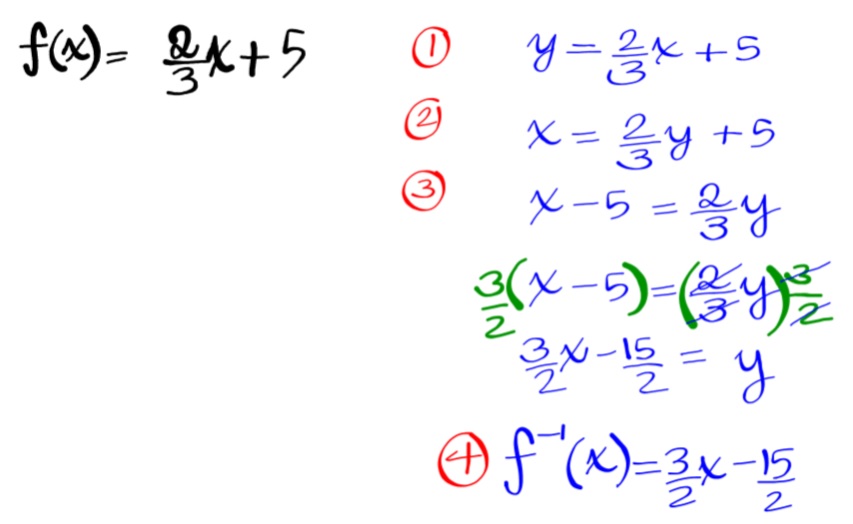 f(x) = 2/3 x + 5
① y = 2/3 x + 5
② x = 2/3 y + 5
③ x − 5 = 2/3 y
3/2 (x − 5) = (2/3 y) 3/2
3/2 x − 15/2 = y
④ f⁻¹(x) = 3/2 x − 15/2